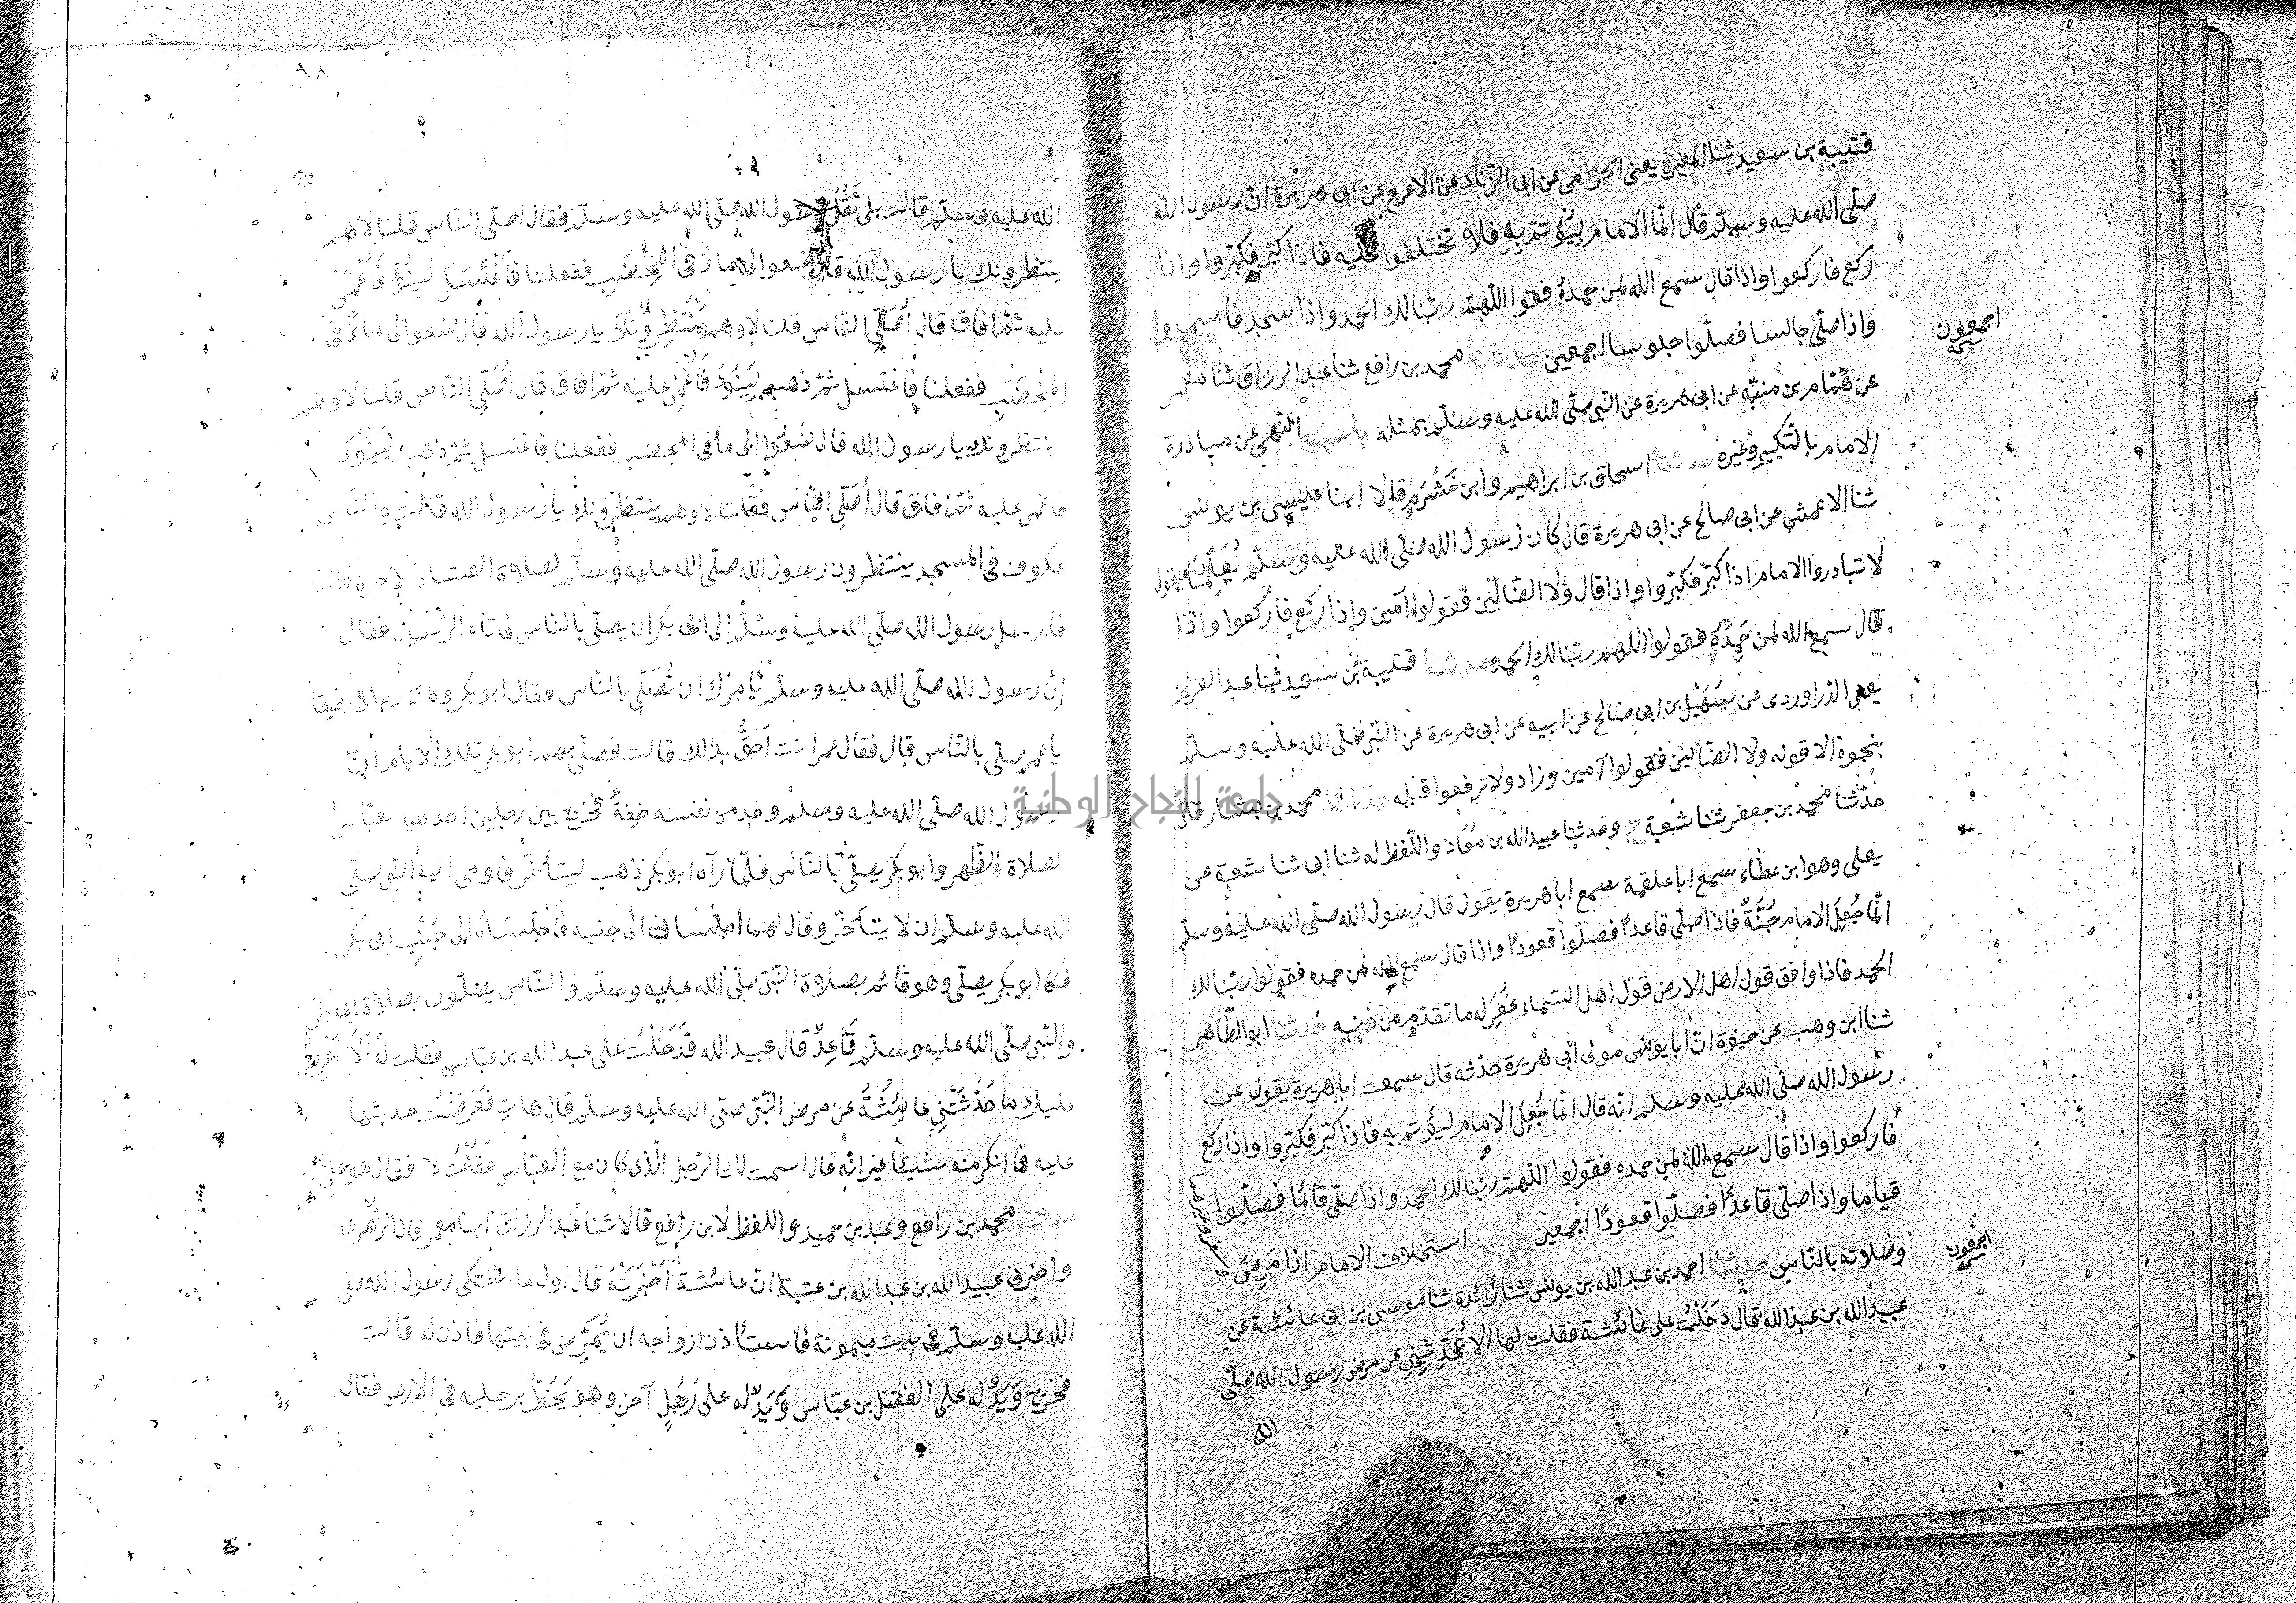 قتيبة بن سعيد ثنا المغيرة يعنى الحزامى عن ابى الزناد عن الاعرج عن ابى هريرة ان رسول الله
صلى الله عليه وسلم قال انما الامام ليؤتم به فلا تختلفوا عليه فاذا كبر فكبروا واذا
ركع فاركعوا واذا قال سمع الله لمن حمده فقولوا اللهم ربنا لك الحمد واذا سجد فاسجدوا
واذا صلى جالسا فصلوا جلوسا اجمعين حدثنا محمد بن رافع ثنا عبد الرزاق ثنا معمر
اجمعون
عن همام بن منبه عن ابى هريرة عن النبى صلى الله عليه وسلم بمثله باب النهى عن مبادرة
الامام بالتكبير وغيره حدثنا اسحاق بن ابراهيم وابن خَشْرَم قالا ابنا عيسى بن يونس
ثنا الاعمش عن ابى صالح عن ابى هريرة قال كان رسول الله صلى الله عليه وسلم يُعَلِّمنا يقول
لا تبادروا الامام اذا كبر فكبروا واذا قال ولا الضالين فقولوا آمين واذا ركع فاركعوا واذا
قال سمع الله لمن حَمِدَه فقولوا اللهم ربنا لك الحمد حدثنا قتيبة بن سعيد ثنا عبد العزيز
يعنى الدراوردى عن سُهَيْل بن ابى صالح عن ابيه عن ابى هريرة عن النبى صلى الله عليه وسلم
بنحوه الا قوله ولا الضالين فقولوا آمين وزاد ولا ترفعوا قبله حدثنا محمد بن بشار قال
حدثنا محمد بن جعفر ثنا شعبة ح وحدثنا عبيد الله بن معاذ واللفظ له ثنا ابى ثنا شعبة عن
يعلى وهو ابن عطاء سمع ابا علقمة سمع ابا هريرة يقول قال رسول الله صلى الله عليه وسلم
انما جُعِلَ الامام جُنَّةٌ فاذا صلى قاعدًا فصلوا قعودًا واذا قال سمع الله لمن حمده فقولوا ربنا لك
الحمد فاذا وافق قول اهل الارض قول اهل السماء غُفِرَ له ما تقدم من ذنبه حدثنا ابو الطاهر
ثنا ابن وهب عن حيوة ان ابا يونس مولى ابى هريرة حدثه قال سمعت ابا هريرة يقول عن
رسول الله صلى الله عليه وسلم انه قال انما جُعِلَ الامام ليؤتم به فاذا كبر فكبروا واذا ركع
فاركعوا واذا قال سمع الله لمن حمده فقولوا اللهم ربنا لك الحمد واذا صلى قائما فصلوا
قياما واذا صلى قاعدًا فصلوا قعودًا اجمعين باب استخلاف الامام اذا مَرِضَ
اجمعون
وصلاته بالناس حدثنا احمد بن عبد الله بن يونس ثنا زائدة ثنا موسى بن ابى عائشة عن
عبيد الله بن عبد الله قال دَخَلْتُ على عائشة فقلت لها الا تُحَدِّثِينِى عن مرض رسول الله صلى
الله
٩٨
الله عليه وسلم قالت بلى ثَقُلَ رسول الله صلى الله عليه وسلم فقال اصلى الناس قلنا لا هم
ينتظرونك يا رسول الله قال ضعوا لى ماءً فى المِخْضَبِ ففعلنا فاغْتَسَلَ لَيَنُوْءَ فَأُغْمِىَ
عليه ثم افاق قال أصَلّى الناس قلنا لا وهم يَنْتَظِرُونَكَ يا رسول الله قال ضعوا لى ماءً فى
المِخْضَبِ ففعلنا فاغتسل ثم ذهب لِيَنُوْءَ فَأُغْمِىَ عليه ثم افاق قال أصَلّى الناس قلنا لا وهم
ينتظرونك يا رسول الله قال ضَعُوا لى ما فى المخضب ففعلنا فاغتسل ثم ذهب لِيَنُوْءَ
فاغمى عليه ثم افاق قال أصَلّى الناس فقلنا لا وهم ينتظرونك يا رسول الله قالت والناس
عكوف فى المسجد ينتظرون رسول الله صلى الله عليه وسلم لصلاة العشاء الاخرة قالت
فارسل رسول الله صلى الله عليه وسلم الى ابى بكر ان يصلى بالناس فاتاه الرسول فقال
ان رسول الله صلى الله عليه وسلم يَأمرك ان تُصَلّى بالناس فقال ابو بكر وكان رجلا رفيقا
يا عمر صلى بالناس قال فقال عمر انت أحَقُّ بذلك قالت فصلى بهم ابو بكر تلك الايام ان
رسول الله صلى الله عليه وسلم وجد من نفسه خِفةً فخرج بين رجلين احدهما عباس
لصلاة الظهر وابو بكر يصلى بالناس فلما رآه ابو بكر ذهب ليتأخر فاومى اليه النبى صلى
الله عليه وسلم ان لا يتأخر وقال لهما اجلسانى الى جنبه فَأَجْلَسَاه الى جَنْبِ ابى بكر
فكا ابو بكر يصلى وهو قائم بصلاة النبى صلى الله عليه وسلم والناس يصلون بصلاة ابى بكر
والنبى صلى الله عليه وسلم قَاعِدٌ قال عبيد الله فَدَخَلْتُ على عبد الله بن عباس فقلت له أَلَا أَعْرِضُ
عليك ما حَدَّثَتْنِى عائِشَةُ عن مرض النبى صلى الله عليه وسلم قال هات فَعَرَضْتُ حديثها
عليه فما انكر منه شيئا غير انه قال اسمت لك الرجل الذى كان مع العباس فَقُلْتُ لا فقال هو عَلىٌّ
حدثنا محمد بن رافع وعبد بن حميد واللفظ لابن رافع قالا ثنا عبد الرزاق ابنا معمر قال الزهرى
واخبرنى عبيد الله بن عبد الله بن عتبة ان عائشة أَخْبَرَتْهُ قال اول ما اشتكى رسول الله صلى
الله عليه وسلم فى بيت ميمونة فاستأذن ازواجه ان يُمَرَّض فى بيتها فاذن له قالت
فخرج وَيَدٌ له على الفضل بن عباس وَيَدٌ له على رَجُلٍ آخر وهو يَخُطُّ برجليه فى الارض فقال
جامعة النجاح الوطنية